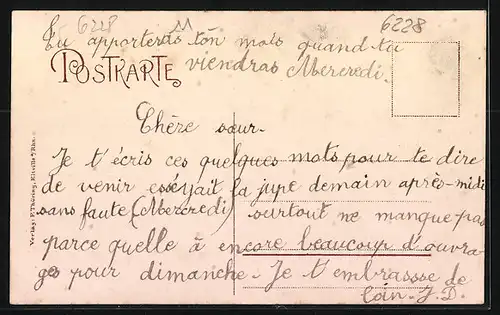 6228
11
6228
Tu apporteras ton mois quand tu
viendras Mercredi.
POSTKARTE
Chère sœur.
Je t'écris ces quelques mots pour te dire
de venir esséyait la jupe demain après-midi
sans faute (Mercredi) surtout ne manque pas
parce quelle à encore beaucoup d'ouvra-
ges pour dimanche. Je t'embrassse de
loin. J. D.
Verlag: F. Thörieg, Eltville a/Rhn.